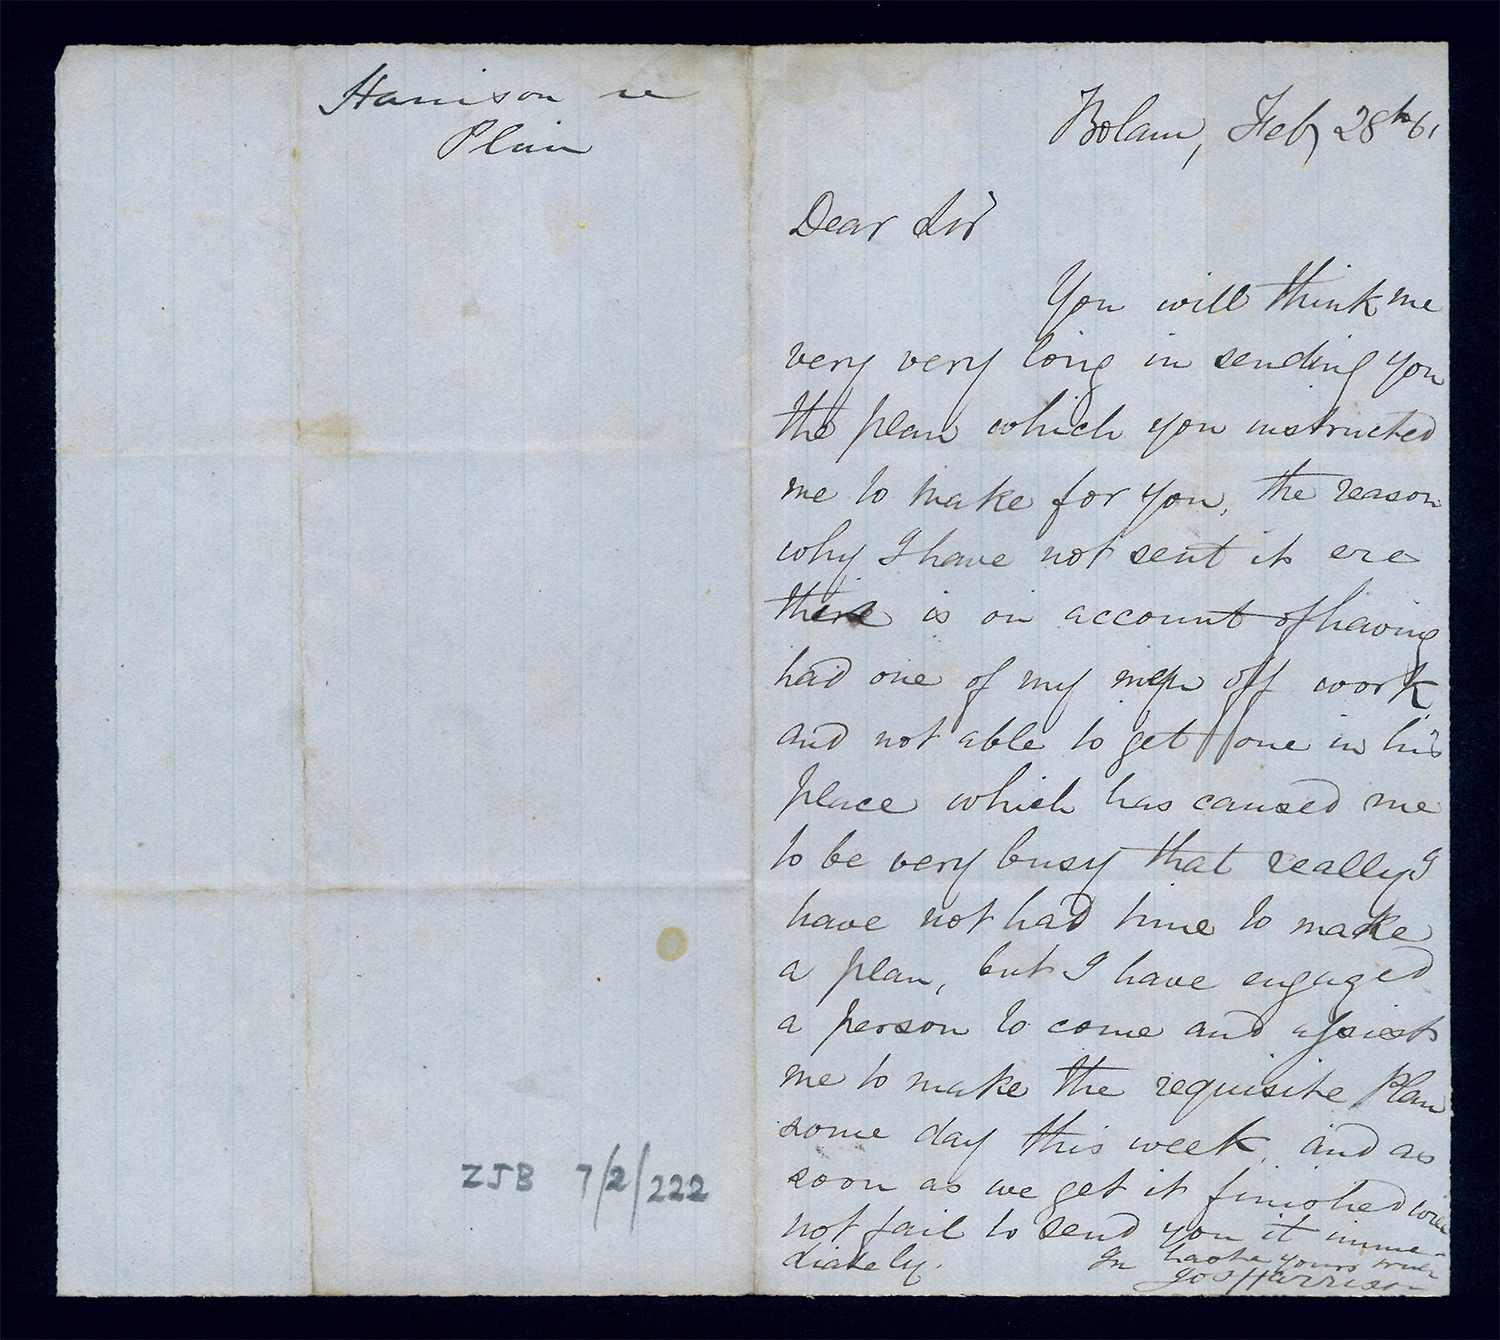 Harrison re
Plan
ZJB 7/2/222
Bolam, Feby 28th 61
Dear Sir
You will think me
very very long in sending you
the plan which you instructed
me to make for you, the reason
why I have not sent it ere
this is on account of having
had one of my men off work,
and not able to get one in his
place which has caused me
to be very busy that really I
have not had time to make
a plan, but I have engaged
a person to come and assist
me to make the requisite Plan
some day this week, and as
soon as we get it finished will
not fail to send you it imme-
diately.
In haste yours truly
Jos Harrison